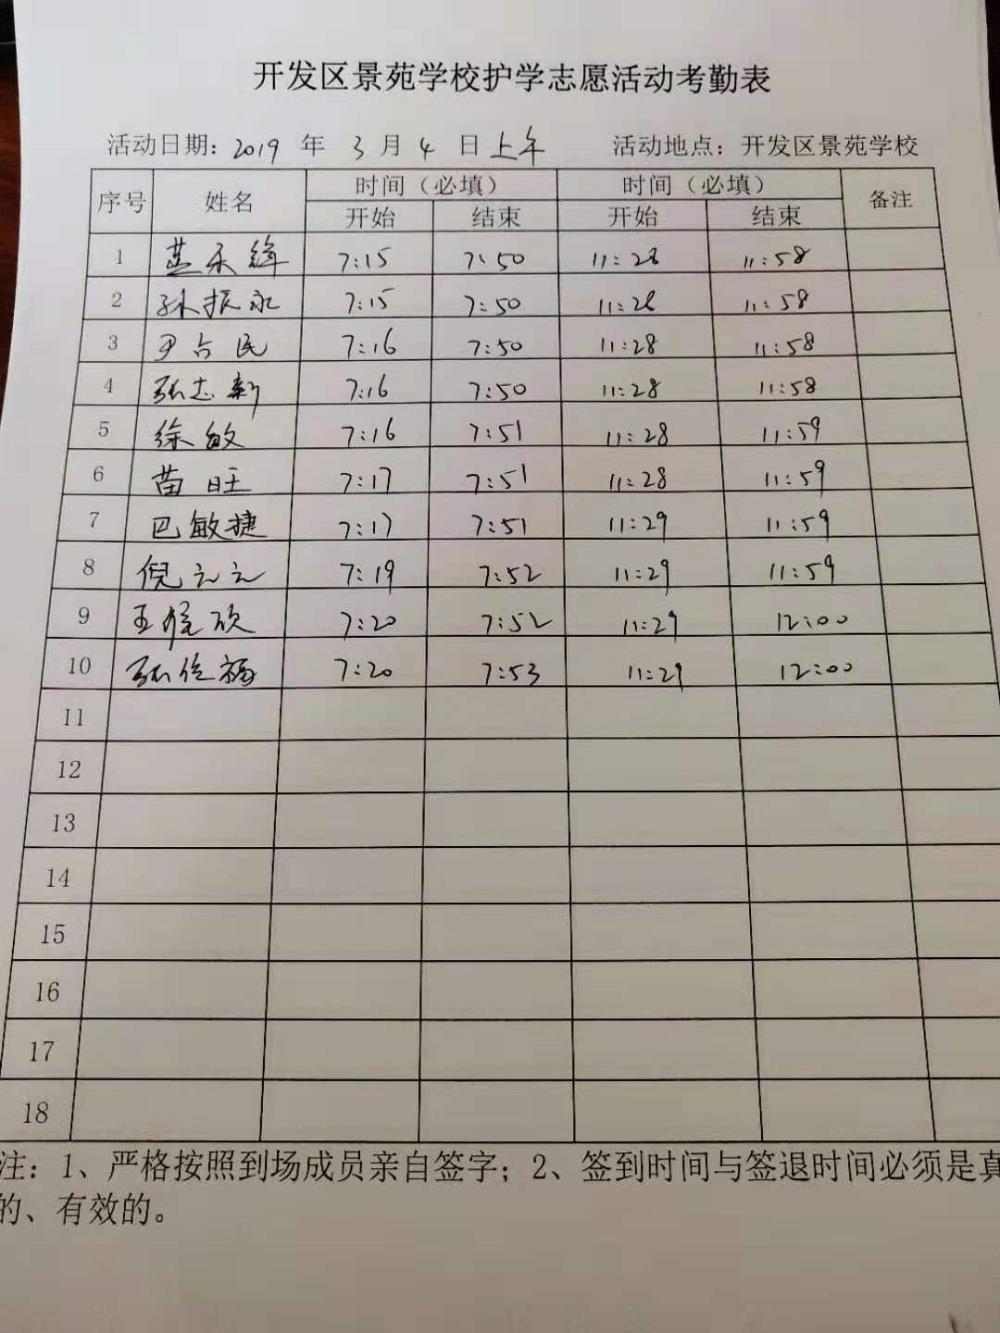 开发区景苑学校护学志愿活动考勤表
活动日期：2019 年 3 月 4 日 上午 活动地点：开发区景苑学校
序号 姓名 时间（必填） 时间（必填） 备注
开始 结束 开始 结束
1 7:15 7:50 11:28 11:58
2 孙振永 7:15 7:50 11:28 11:58
3 尹占民 7:16 7:50 11:28 11:58
4 张志新 7:16 7:50 11:28 11:58
5 徐敏 7:16 7:51 11:28 11:59
6 苗旺 7:17 7:51 11:28 11:59
7 巴敏捷 7:17 7:51 11:29 11:59
8 倪云云 7:19 7:52 11:29 11:59
9 王 欣 7:20 7:52 11:29 12:00
10 张传福 7:20 7:53 11:29 12:00
11
12
13
14
15
16
17
18
注：1、严格按照到场成员亲自签字；2、签到时间与签退时间必须是真
的、有效的。